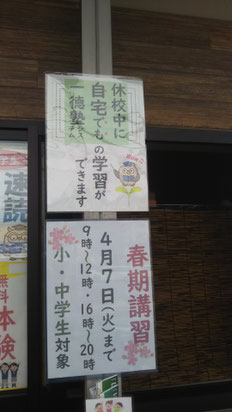 休校中に
自宅での学習が
一徳塾
できます
春期講習
4月7日(火)まで
9時〜12時・16時〜20時
小・中学生対象
速読
無料
体験